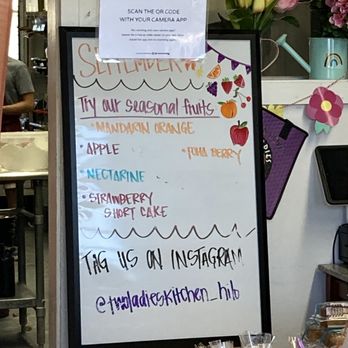 SCAN THE QR CODE
WITH YOUR CAMERA APP
SEPTEMBER
Try our seasonal fruits
• MANDARIN ORANGE
• APPLE
• POHA BERRY
• NECTARINE
• STRAWBERRY
SHORT CAKE
TAG US ON INSTAGRAM
@twoladieskitchen_hilo